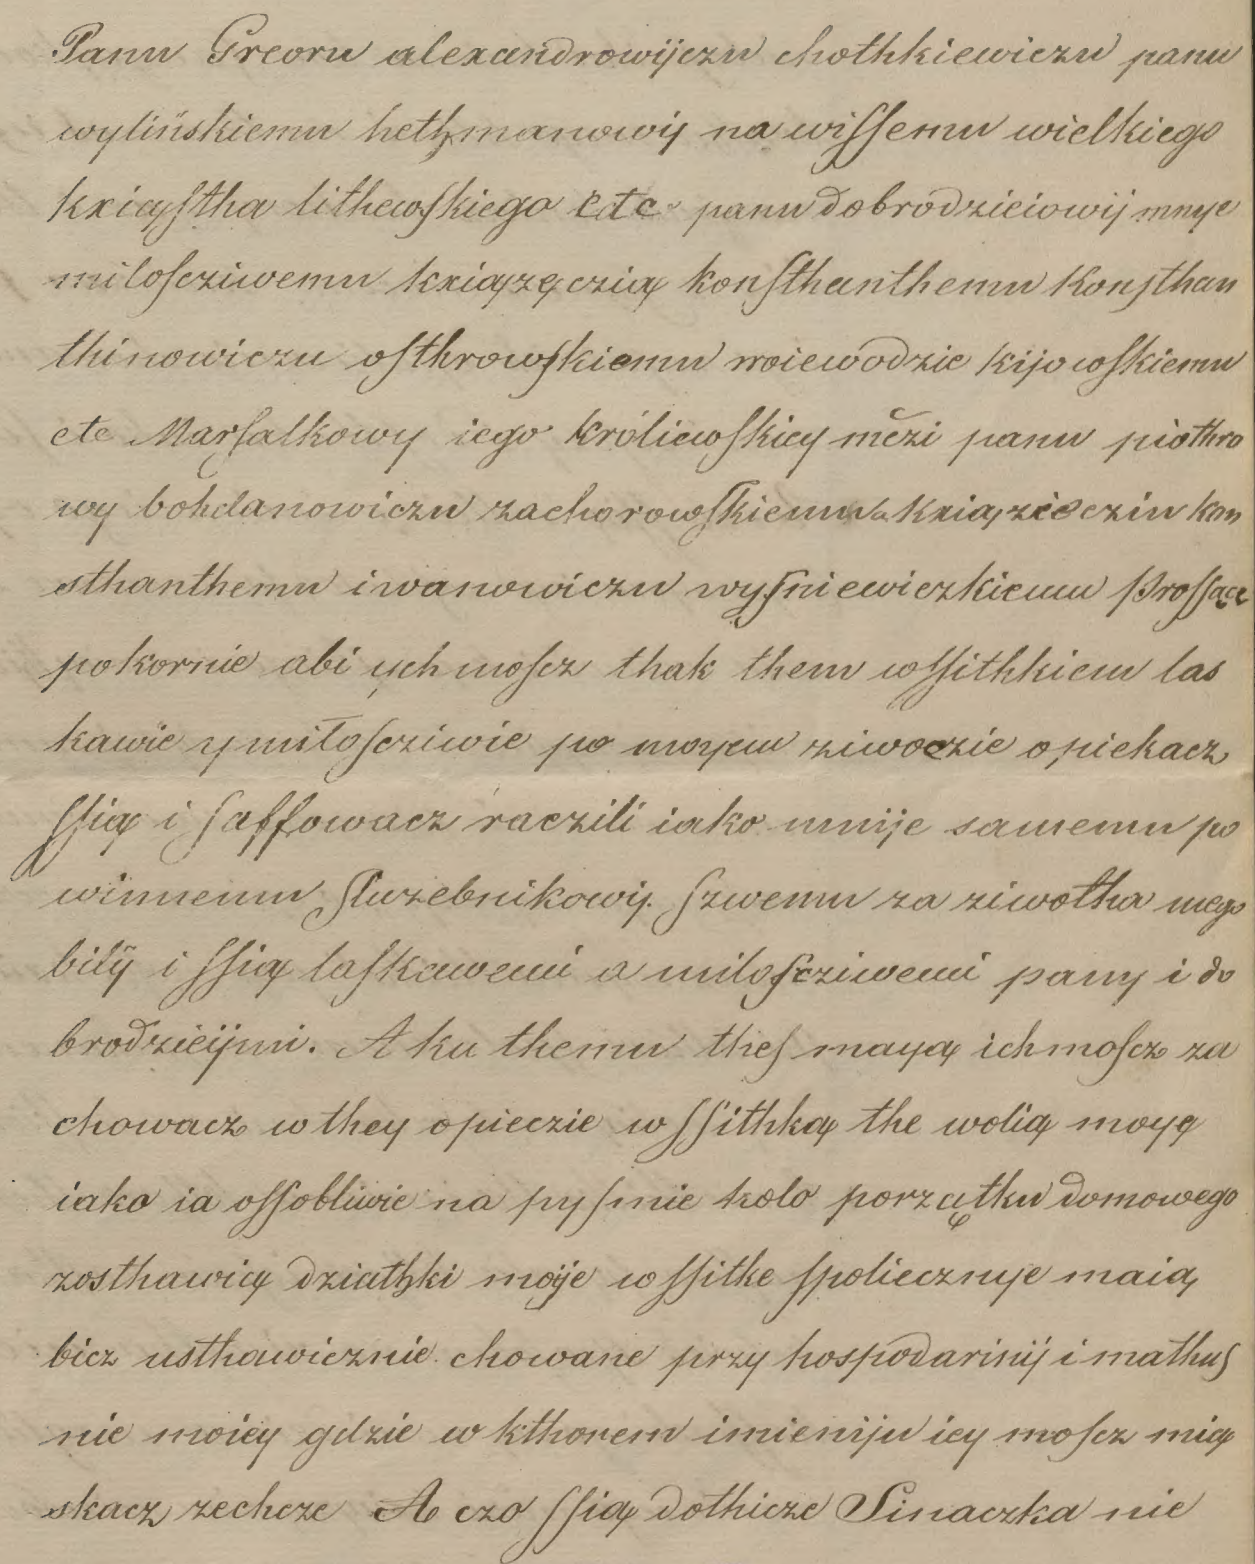 Panu Greoru alexandrowijczu chothkiewiczu panu
wylińskiemu hethmanowij nawiſſemu wielkiego
kxiąſtha lithewſkiego etc panu dobrodzieiowij mnye
miloſcziwemu kxiążęczią konſthanthemu Konſthan
thinowiczu oſthrowſkiemu woiewodzie kijowſkiemu
etc Marſalkowy iego króliewſkiey mczi panu piothro
wy bohdanowiczu zachorowſkiemu kxiązięcziu kon
sthanthemu iwanowiczu wyſniewiczkiemu proſſące
pokornie abi ych moſcz thak them wſſithkiem las
kawie y miłoſcziwie po moyem ziwoczie opiekacz
ſſią i ſaffowacz raczili iako mnije samemu po
winnemu ſluzebnikowij ſzwemu za ziwotha mego
bilÿ i ſſią laſkawemi a miloſcziwemi pany i do
brodzieijmi. A ku themu theſ mayą ich moſcz za
chowacz w they opieczie wſſithką the wolią moyę
iako ia oſſobliwie na pyſmie kolo porządku domowego
zosthawią dziathki moije wſſitke ſpoliecznye maią
bicz usthawicznie chowane przy hospodarinij i mathuſ
nie moiey gdzie w kthorem imieniju iey moſcz mią
skacz zechcze A czo ſſią dothicze Sinaczka nie